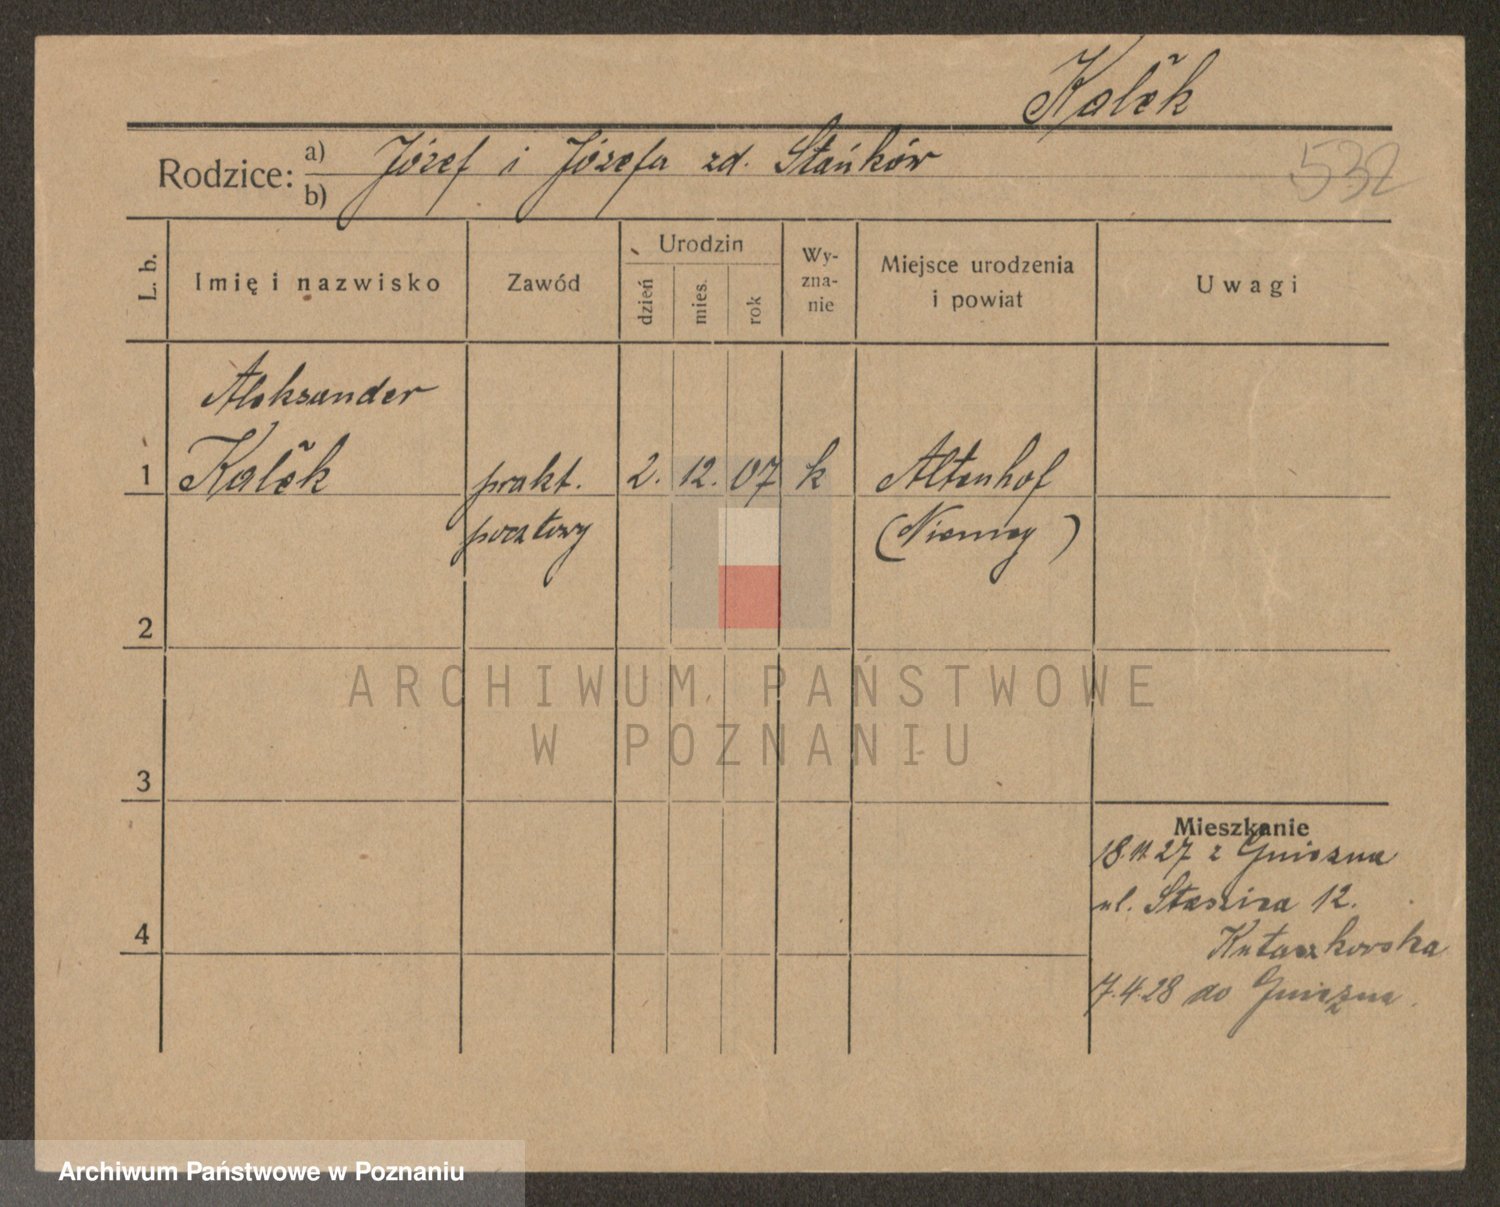 Kalĕk
Rodzice: a) Józef i Józefa zd. Stańków
b)
532
L. b. Imię i nazwisko Zawód Urodzin dzień mies. rok Wy-zna-nie Miejsce urodzenia i powiat Uwagi
Aleksander
1 Kalĕk prakt. 2. 12. 07 k Altenhof
pocztowy (Niemcy)
2
ARCHIWUM PAŃSTWOWE
W POZNANIU
3
Mieszkanie
18.11.27 z Gniezna
ul. Staszica 12.
4
7.4.28 do Gniezna.
Archiwum Państwowe w Poznaniu